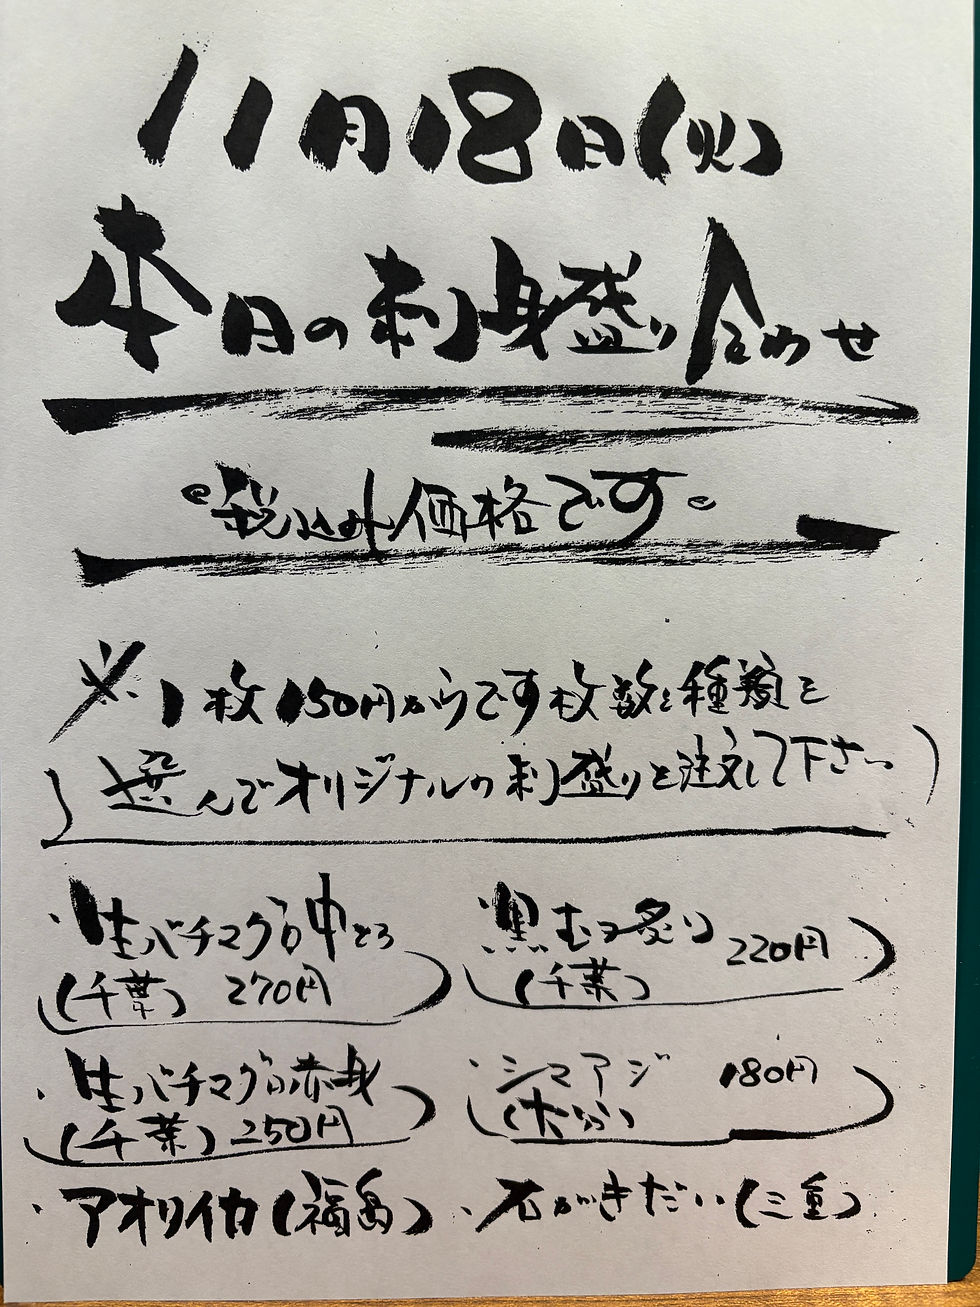 11月18日(火)
本日の刺身盛り合わせ
税込み価格です。
※1枚150円からです枚数と種類を
選んでオリジナルの刺盛りを注文して下さい
・生バチマグロ中とろ
(千葉) 270円
・黒むつ炙り
(千葉) 220円
・生バチマグロ赤身
(千葉) 250円
・シマアジ 180円
(大分)
・アオリイカ(福島)
・石がきだい(三重)